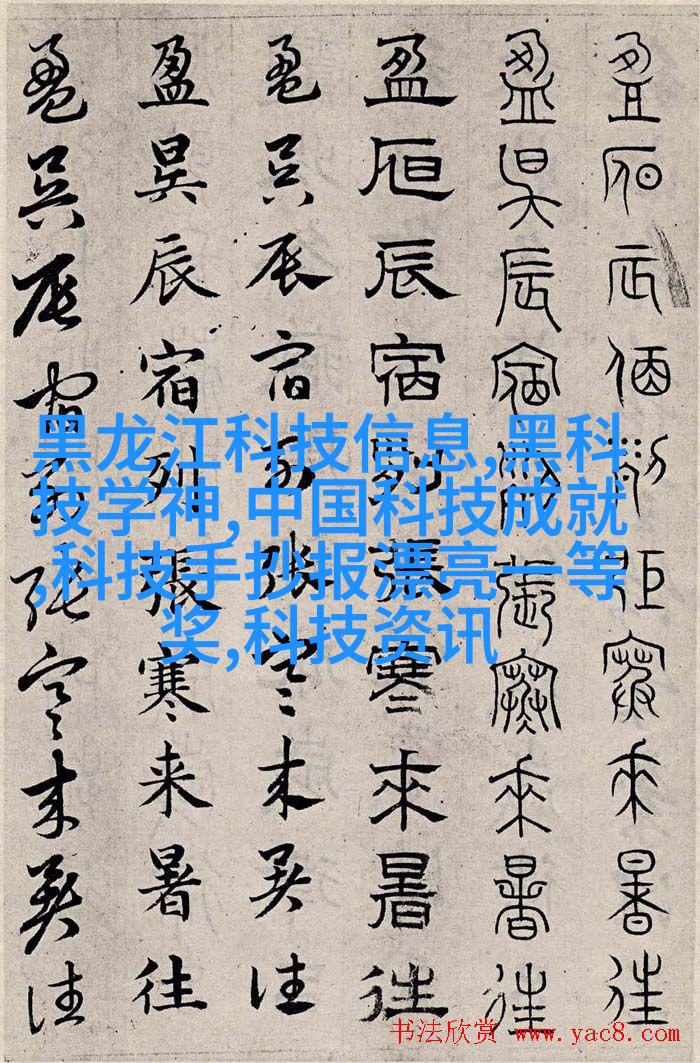 盈昃辰宿列張寒來暑往
盈昃辰宿列張寒來暑往
盈昃辰宿列張寒來暑往
盈昃辰宿列張寒来暑往
盈昃辰宿列張寒来暑往
盈昃辰宿列張寒来暑往
黑龙江科技信息,黑科
技学神,中国科技成就
,科技手抄报漂亮一等
奖,科技资讯
书法欣赏 www.yac8.com